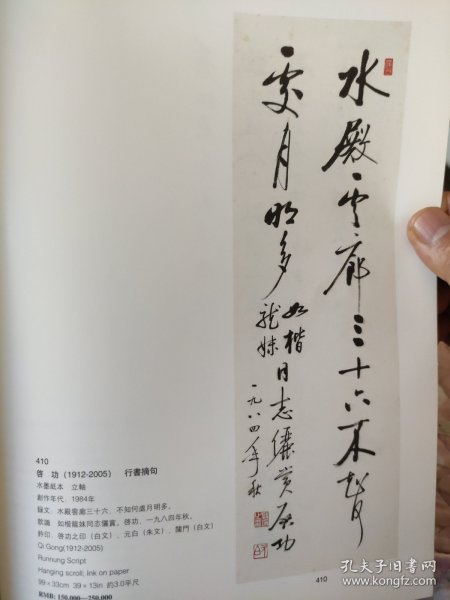 水殿雲廊三十六不知何
處月明多
如楷
龍妹
同志儷賞 启功
一九八四年秋
410
啓 功(1912-2005) 行書摘句
水墨紙本 立軸
創作年代:1984年
録文:水殿雲廊三十六,不知何處月明多。
款識:如楷龍妹同志儷賞。啓功,一九八四年秋。
鈐印:啓功之印(白文)、元白(朱文)、
Qi Gong(1912-2005)
Runnung Script
Hanging scroll; Ink on paper
99×33cm 39×13in 約3.0平尺
RMB: 150,000—250,000
410
孔夫子旧书网